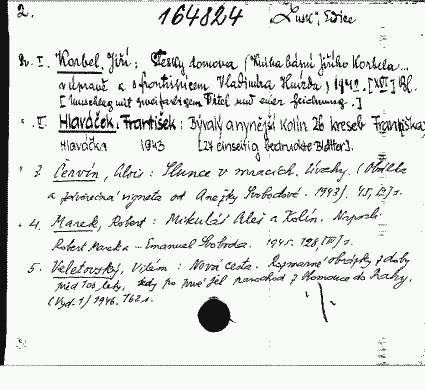 2. 164824 "Lusk", Edice
I. Korbel, Jiří: Česky domova (Kniha básní Jiřího Korbela...
v úpravě a s frontispicem Vladimíra 1942. [XVI] Bl.
[Umschlag mit zweifarbigem Titel und einer Zeichnung.]
II. Hlaváček, František: Bývalý a nynější Kolín 26 kreseb Františka
Hlaváčka 1943 [24 einseitig bedruckte Blätter].
3. Červín, Alois: Slunce v mracích. Úvahy. (Obálka
a závěrečná vigneta od Anežky Svobodové. 1943). 45, [1] s.
4. Marek, Robert: Mikuláš Aleš a Kolín. Napsali
Robert Marek a... Emanuel Svoboda. 1945. 128, [III] s.
5. Veletovský, Vilém: Nová cesta. Rozmarné obrázky z doby
před 100 lety, kdy po prvé jel parochod z Olomouce do Prahy.
(Vyd. 1) 1946. 162 s.